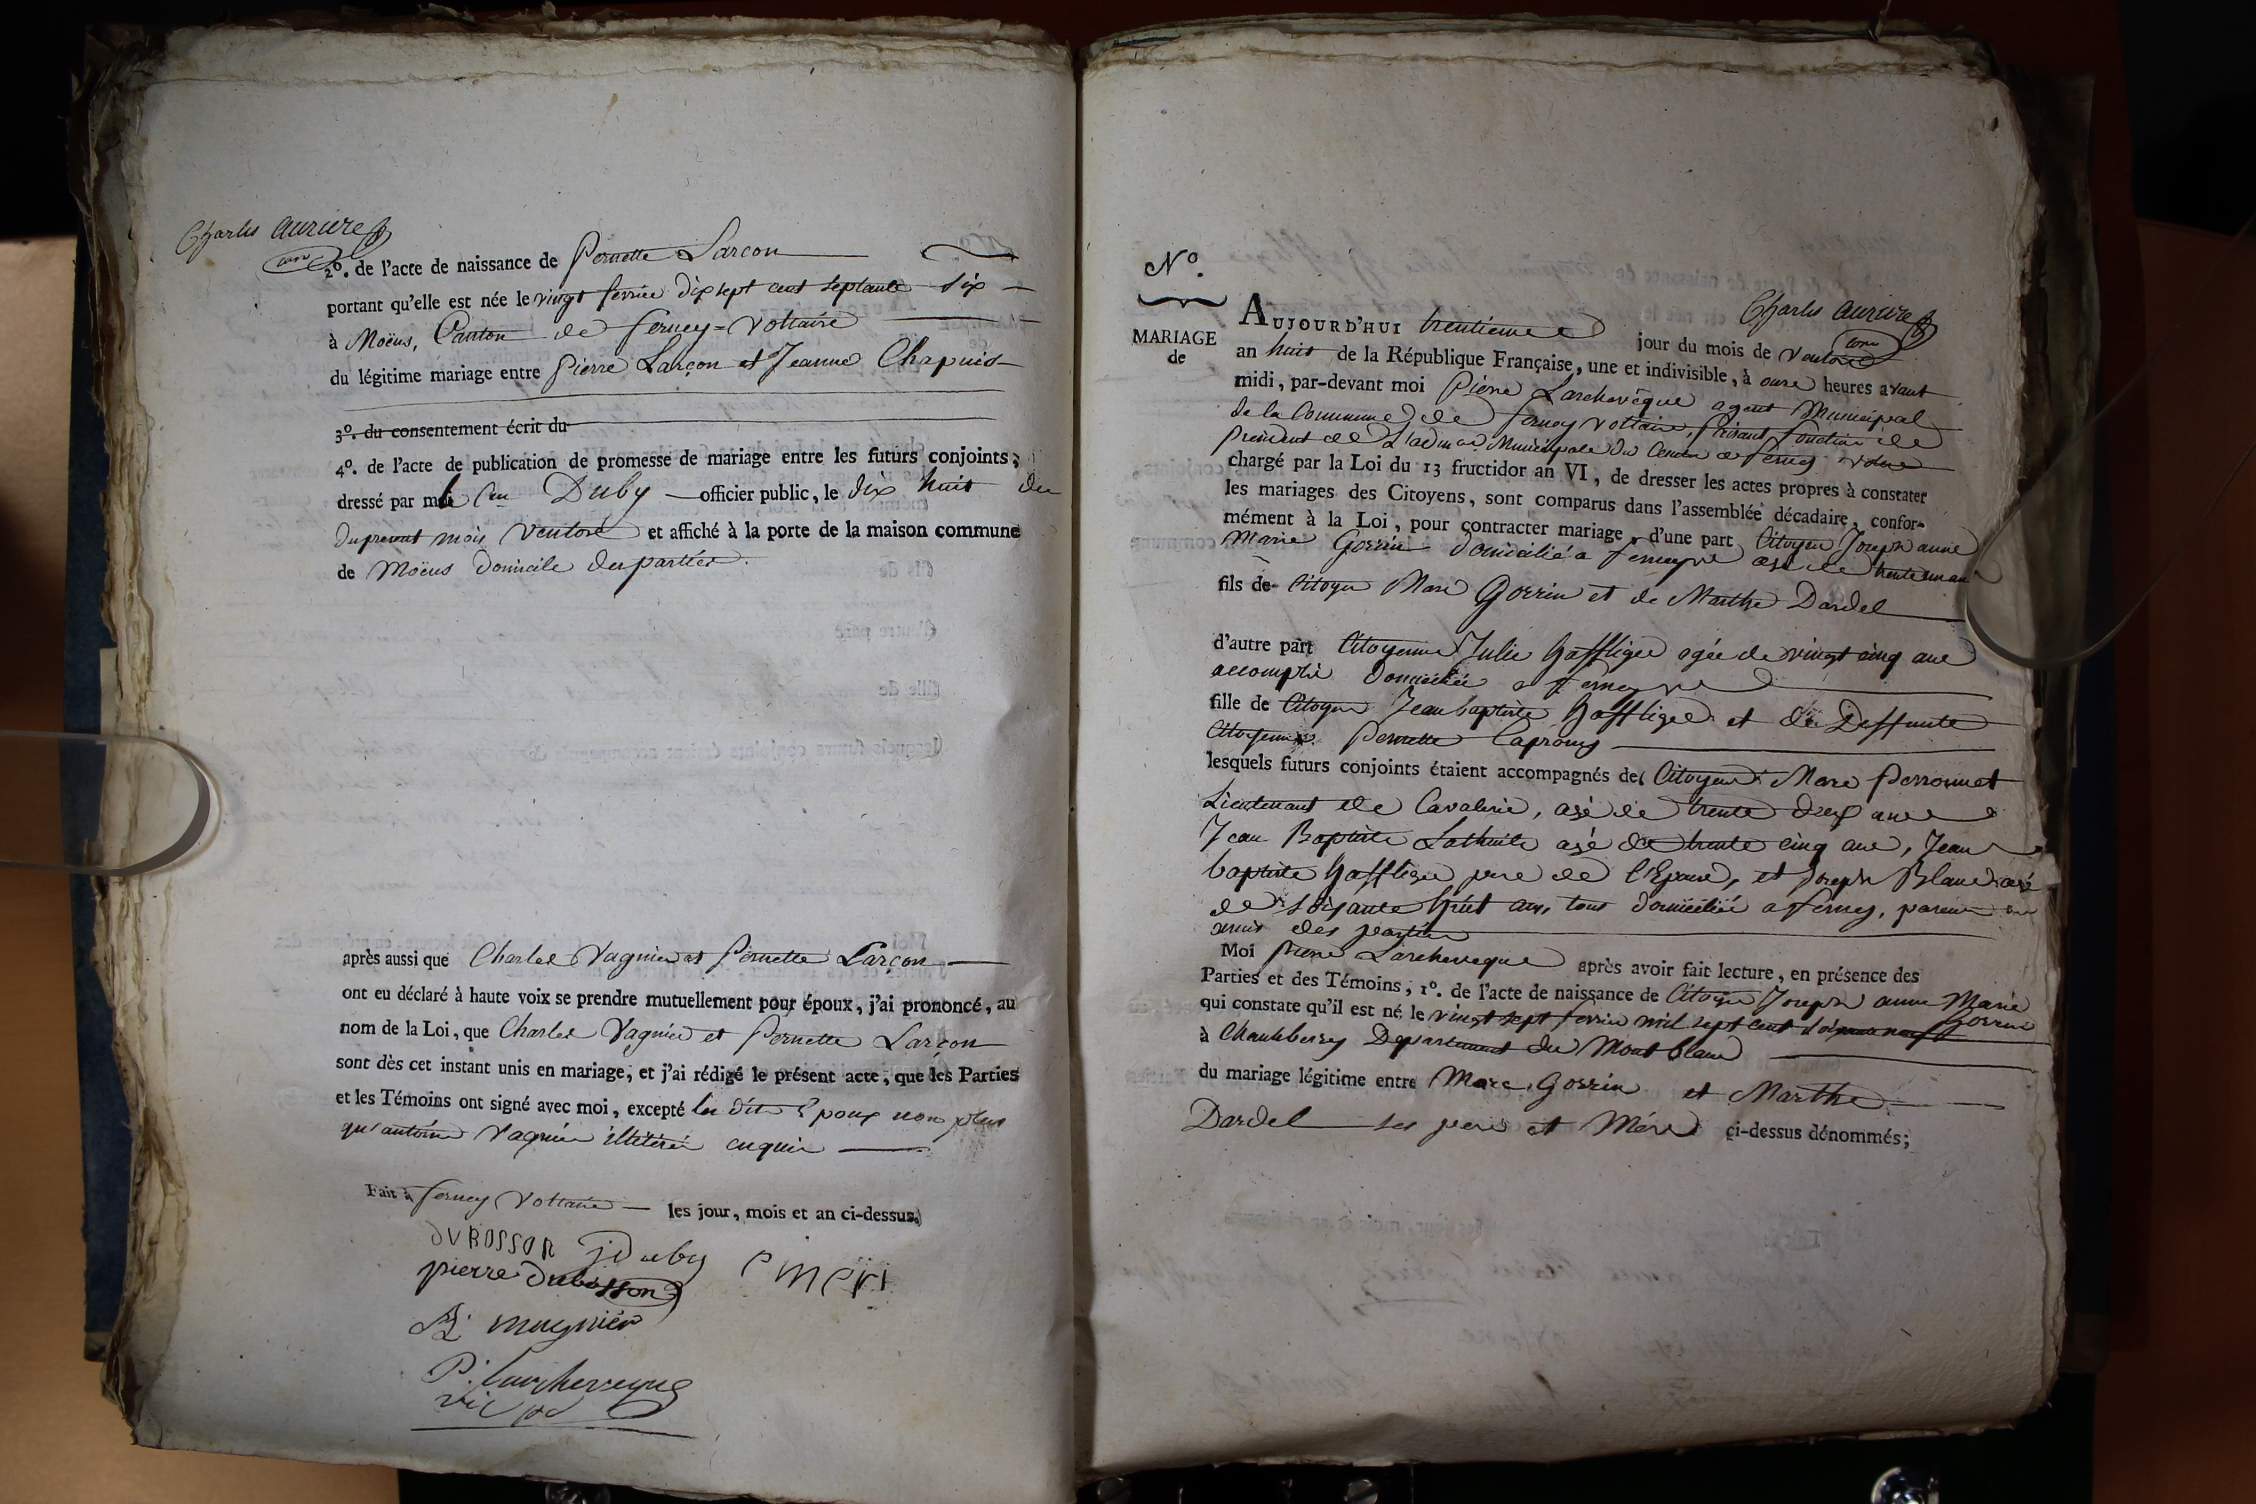 Charles auriere
2º. de l'acte de naissance de Pernette Larcon
portant qu'elle est née le vingt fevrier dix sept cent septante six
à Moëns, Canton de ferney-Voltaire
du légitime mariage entre Pierre Larçon et Jeanne Chapuis
3º. du consentement écrit du
4º. de l'acte de publication de promesse de mariage entre les futurs conjoints;
dressé par le Cen Duby officier public, le dix huit du
du present mois Ventose et affiché à la porte de la maison commune
de Moëns domicile des parties.
après aussi que Charles Vagnier et Pernette Larçon
ont eu déclaré à haute voix se prendre mutuellement pour époux, j'ai prononcé, au
nom de la Loi, que Charles Vagnier et Pernette Larçon
sont dès cet instant unis en mariage, et j'ai rédigé le présent acte, que les Parties
et les Témoins ont signé avec moi, excepté les dits Epoux non plus
qu'antoine Vagnier illitéré enquis
Fait à ferney Voltaire les jour, mois et an ci-dessus.
DUBOSSON J Duby
pierre Dubosson
P. Larcheveque
Nº.
MARIAGE
de
Charles auriere
AUJOURD'HUI trentieme jour du mois de Ventose
an huit de la République Française, une et indivisible, à onze heures avant
midi, par-devant moi Pierre Larcheveque agent Municipal
de la Commune de ferney Voltaire, faisant fonction de
President de L'admon. Municipale du Canton de ferney
chargé par la Loi du 13 fructidor an VI, de dresser les actes propres à constater
les mariages des Citoyens, sont comparus dans l'assemblée décadaire, confor-
mément à la Loi, pour contracter mariage, d'une part Citoyen Joseph anne
Marie Gorrin domicilié a ferney agé de trente un an
fils de Citoyen Marc Gorrin et de Marthe Dardel
d'autre part Citoyenne Julie haffliger agée de vingt cinq ans
accomplis domiciliée a ferney
fille de Citoyen Jean baptiste haffliger et de Deffunte
Citoyenne Pernette
lesquels futurs conjoints étaient accompagnés de Citoyens Marc Perronnet
Lieutenant de Cavalerie, agé de trente deux ans
Jean Baptiste Lathuile agé de trente cinq ans, Jean
baptiste haffliger pere de l'Epouse, et Joseph Blanc agé
de soixante huit ans, tous domiciliés a ferney, parens ou
amis des parties
Moi Pierre Larcheveque après avoir fait lecture, en présence des
Parties et des Témoins, 1º. de l'acte de naissance de Citoyen Joseph anne Marie
Gorrin
qui constate qu'il est né le vingt sept fevrier mil sept cent soixante neuf
à Chambery Departement du Mont blanc
du mariage légitime entre Marc Gorrin et Marthe
Dardel ses pere et Mere ci-dessus dénommés;